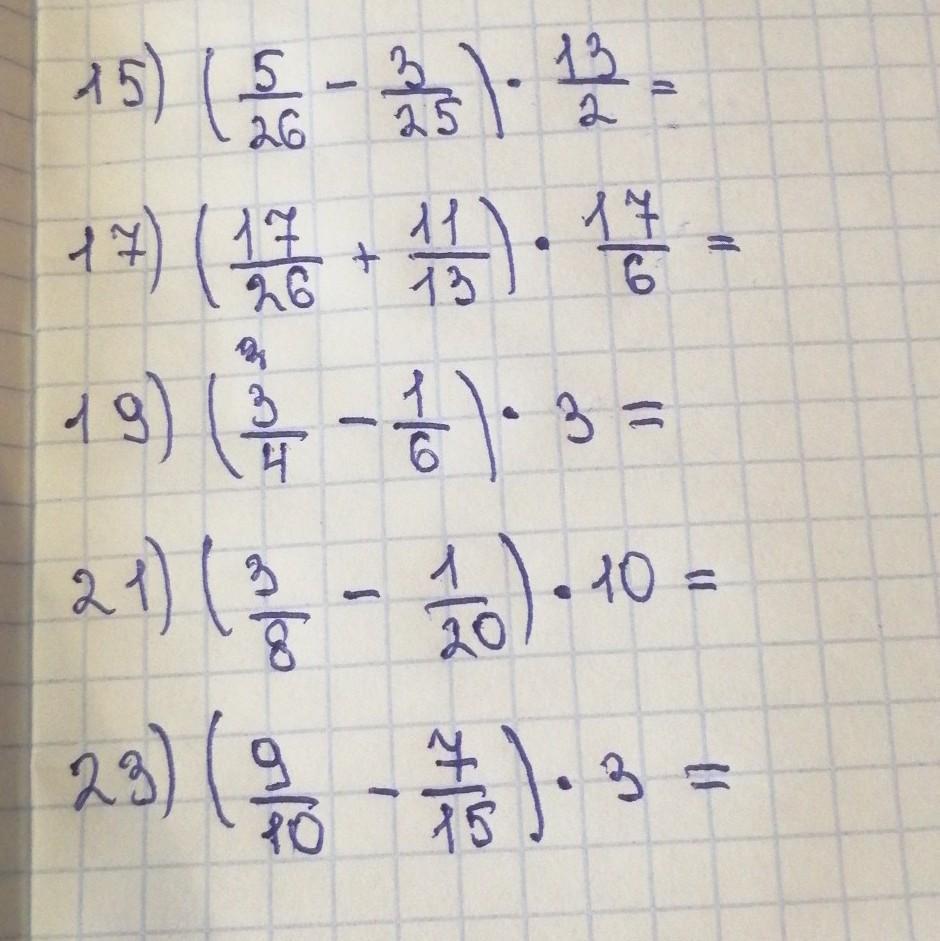 15) (5/26 - 3/25) · 13/2 =
17) (17/26 + 11/13) · 17/6 =
19) (3/4 - 1/6) · 3 =
21) (3/8 - 1/20) · 10 =
23) (9/10 - 7/15) · 3 =